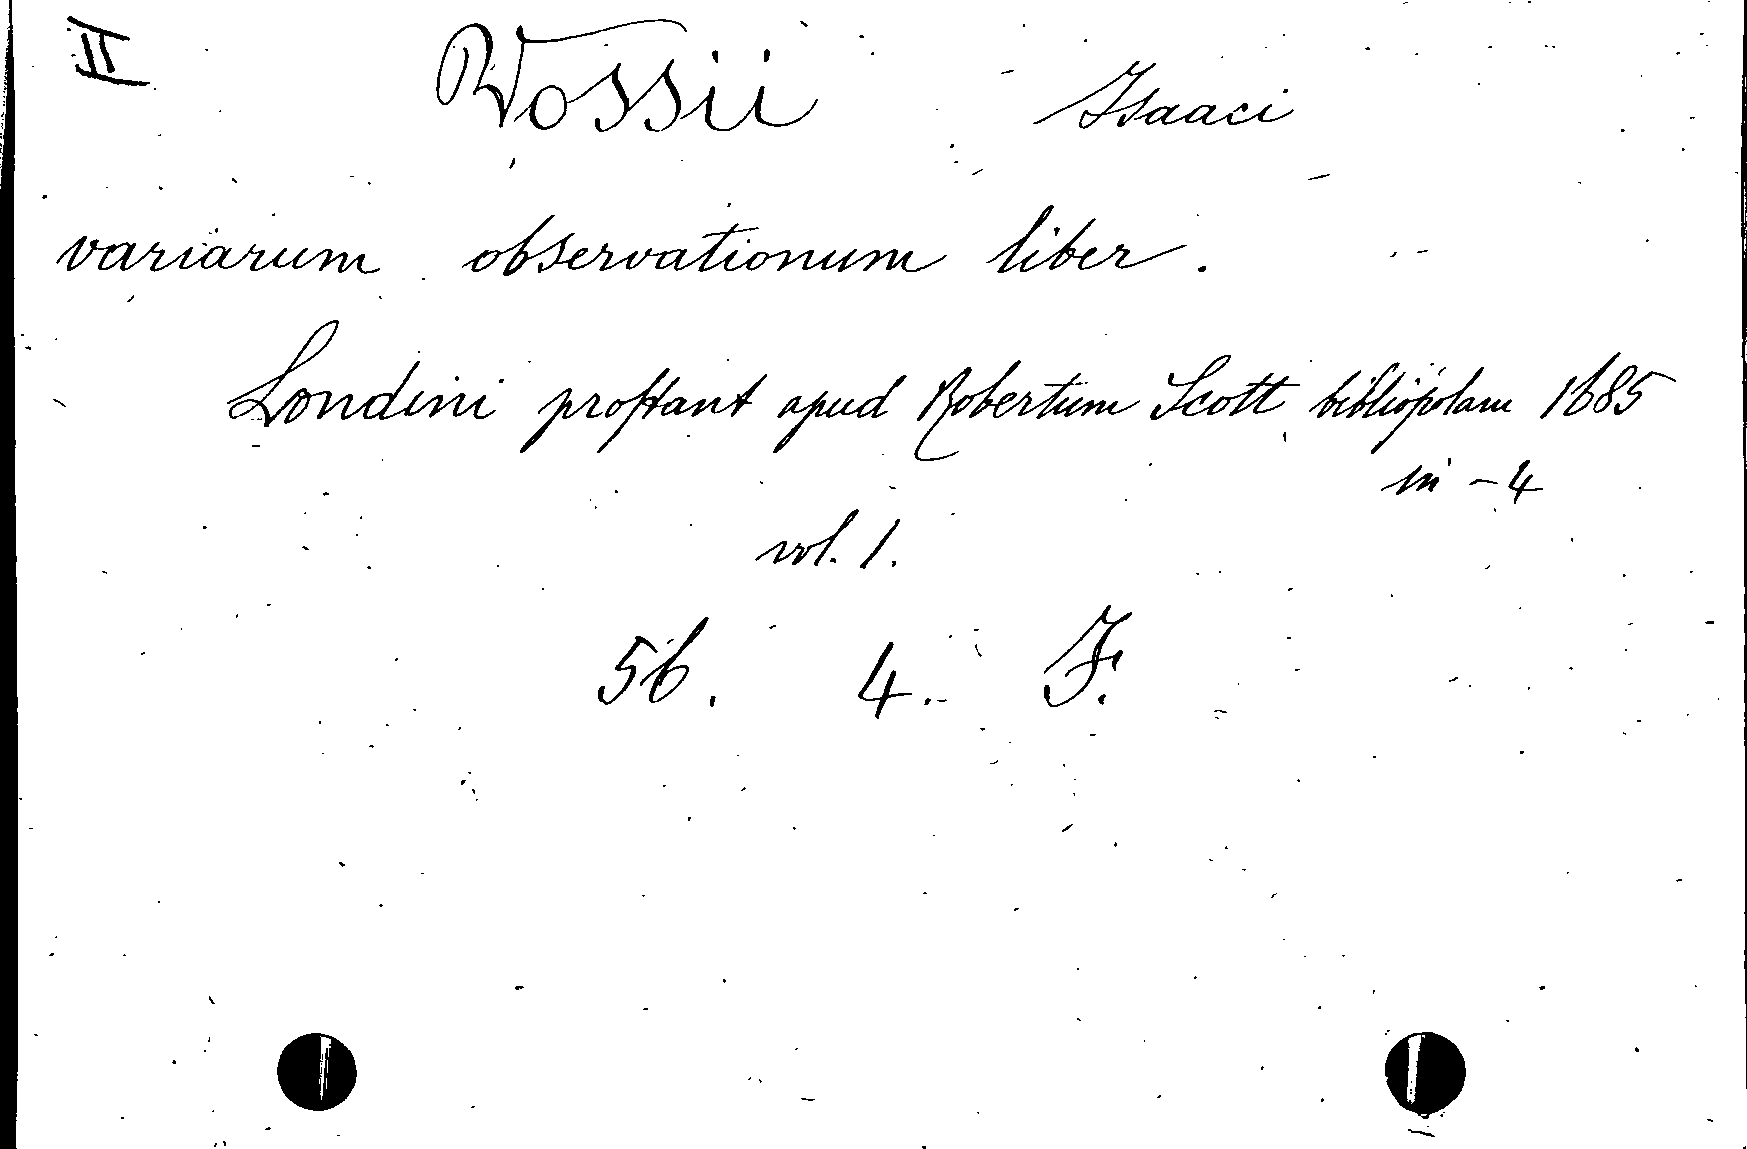 II Vossii Isaaci
variarum observationum liber.
Londini prostant apud Robertum Scott bibliopolam 1685
in-4
vol. 1.
56. 4. F.